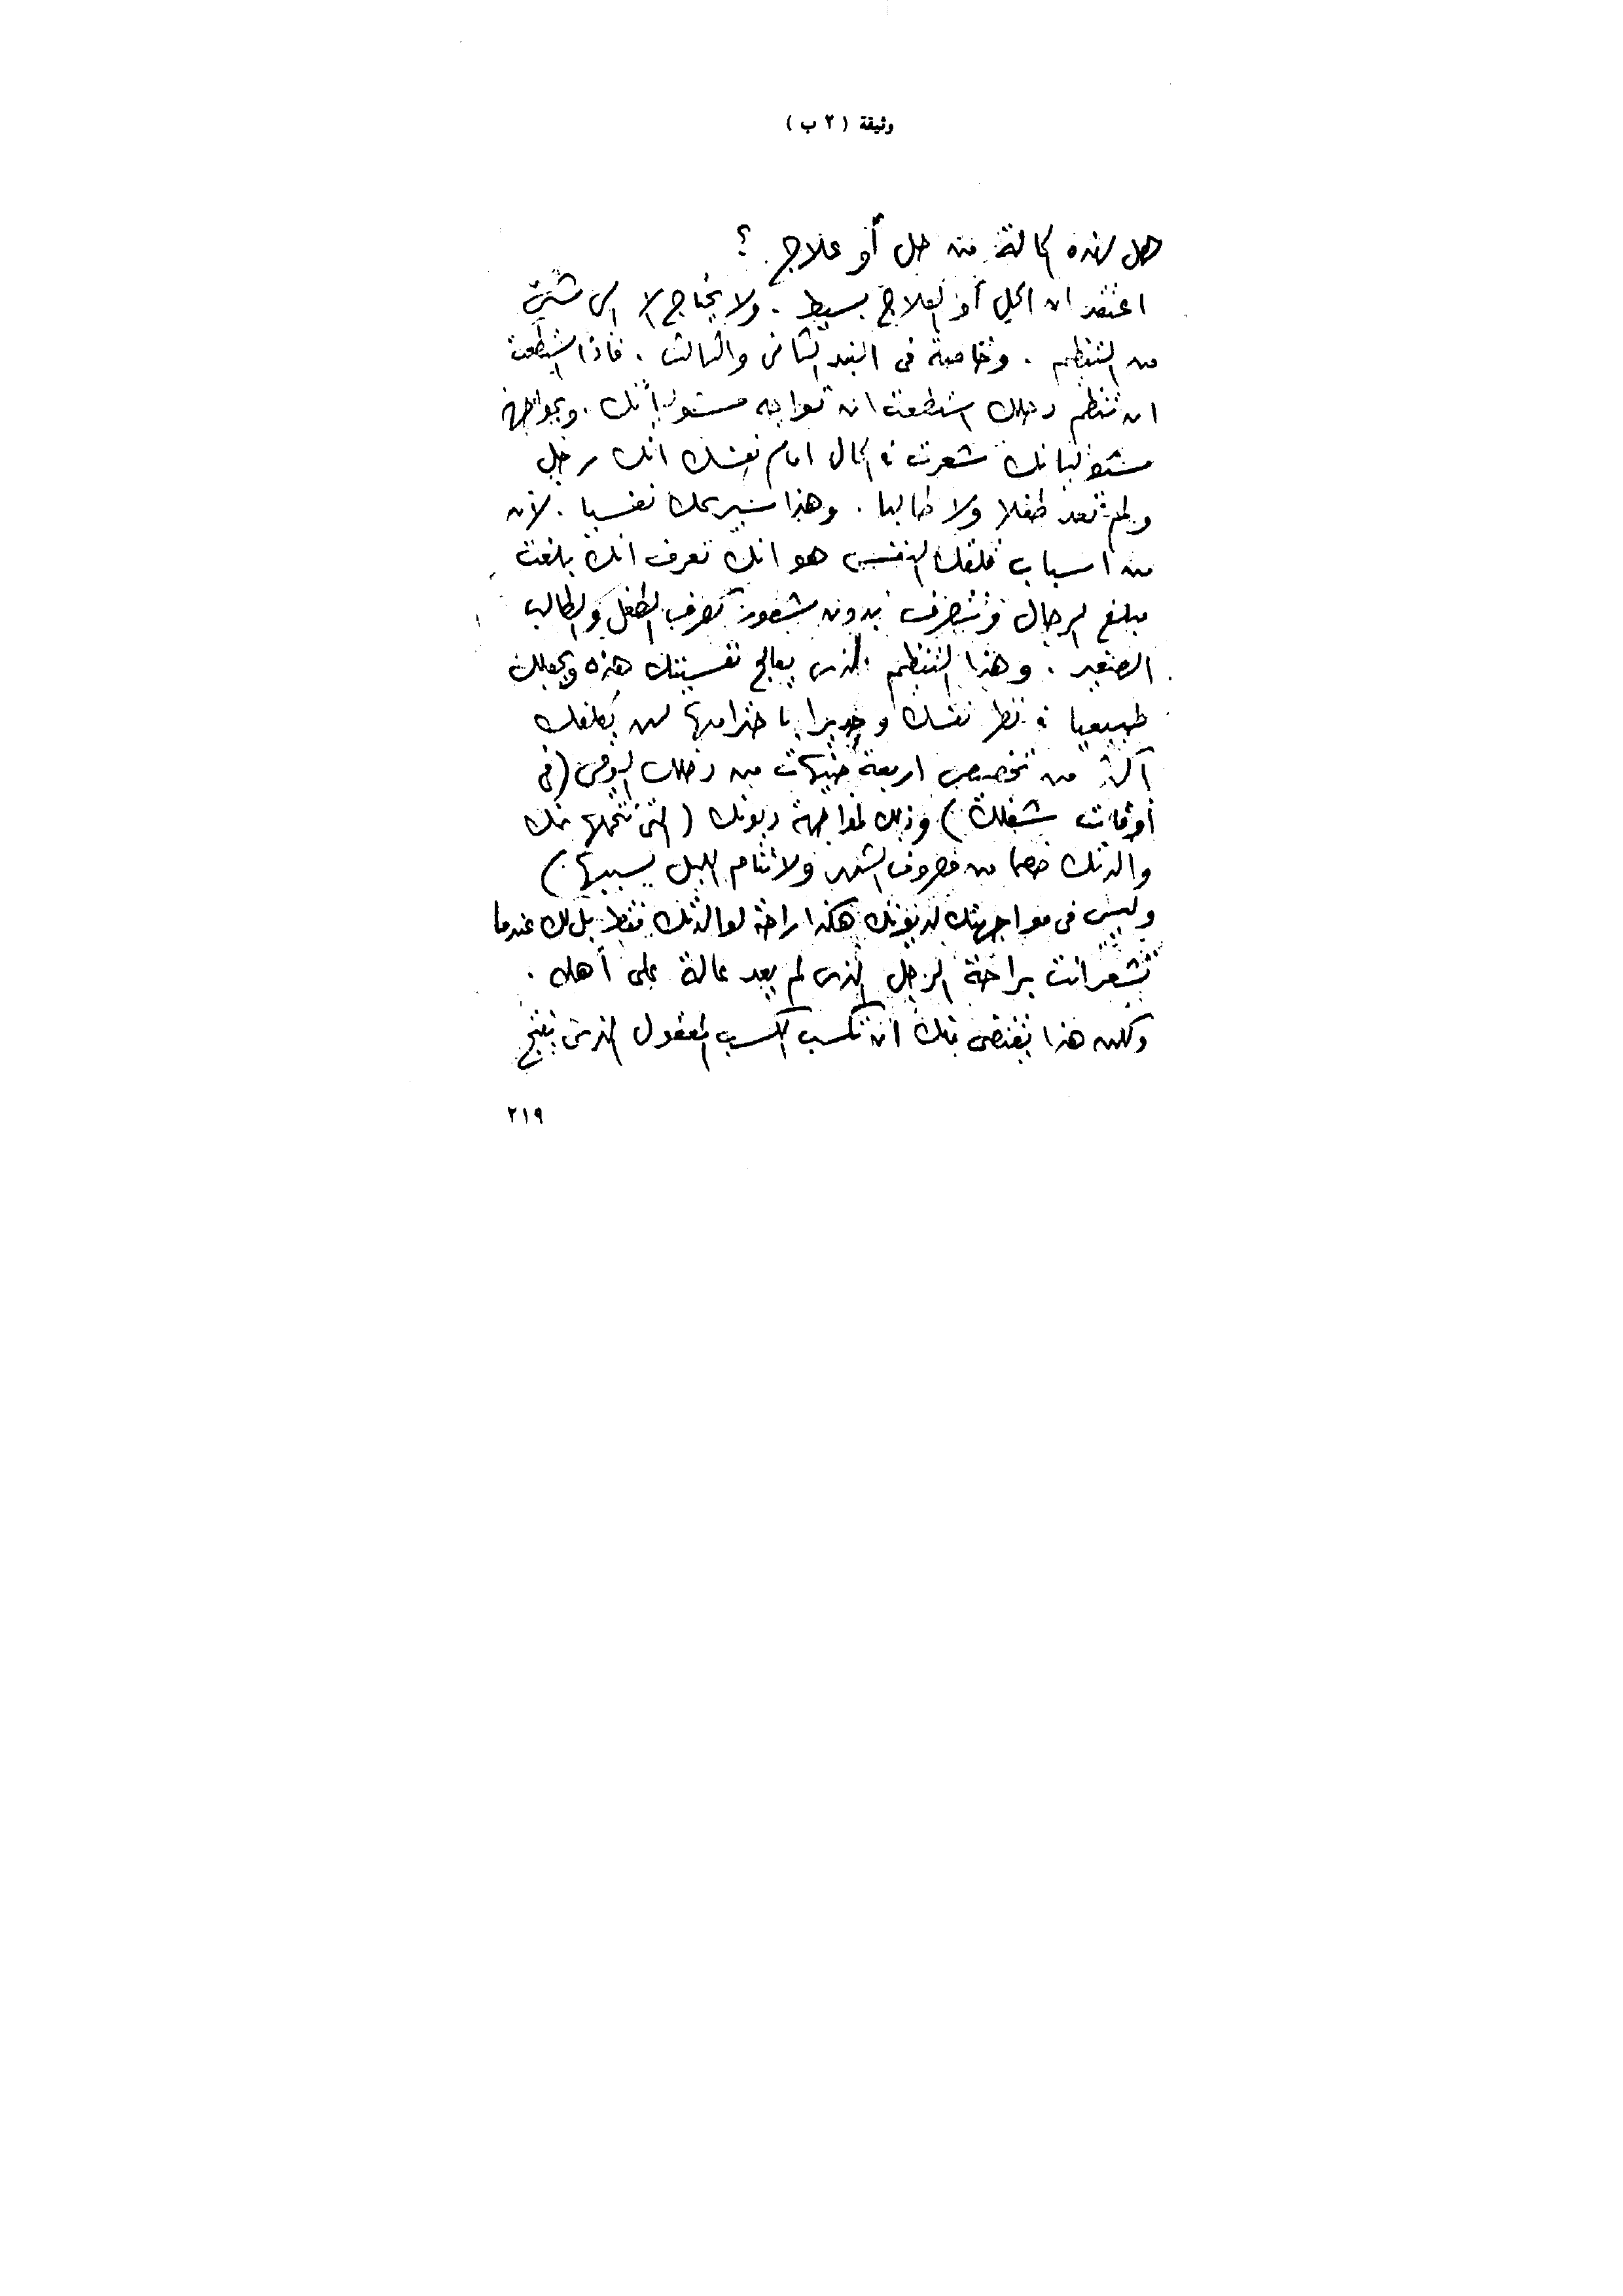 وثيقة ( ٢ ب )
هل لهذه الحالة من حل أو علاج . ؟
اعتقد ان الحل أو العلاج بسيط . ولا يحتاج الا الى شئ
من التنظيم . وخاصة فى البند الثانى والثالث . فاذا استطعت
ان تنظم دخلك استطعت ان تواجه مسئولياتك . وبمواجهة
مسئولياتك شعرت فى الحال امام نفسك انك رجل
ولم تعد طفلا ولا طالبا . وهذا سيريحك نفسيا . لأن
من اسباب قلقك النفسى هو انك تعرف انك بلغت
مبلغ الرجال وتتصرف بدون شعور تصرف الطفل والطالب
الصغير . وهذا التنظيم الذى يعالج نفسيتك هذه ويجعلك
طبيعيا فى نظر نفسك وجديرا باحترامها لن يكلفك
أكثر من تخصيص اربعة جنيهات من دخلك اليومى (فى
أوقات شغلك) وذلك لمواجهة ديونك ( التى تتحملها عنك
والدتك خصما من مصروف الشهر ولا تنام الليل بسببها . )
وليس فى مواجهتك لديونك هكذا راحة لوالدتك فقط بل لك عندما
تشعر انت براحة الرجل الذى لم يعد عالة على أهله .
ولكن هذا يقتضى منك ان تكسب الكسب المعقول الذى ينتج
٢١٩